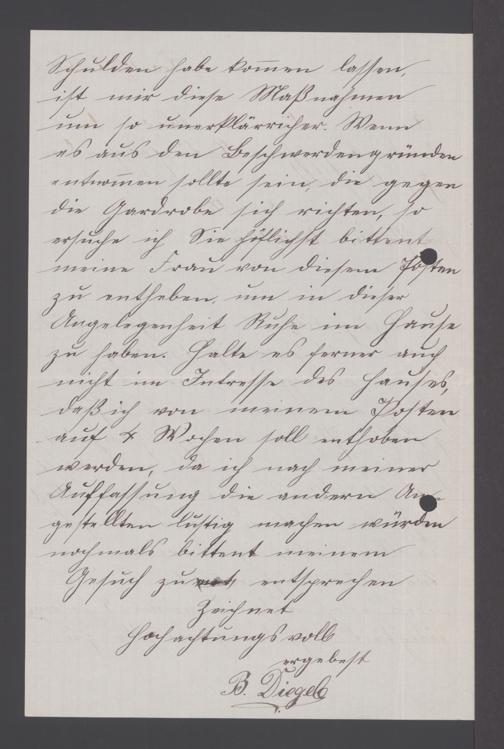 Schulden habe kommen lassen,
ist mir diese Maßnahmen
um so unerklärricher. Wenn
es aus den Beschwerdengründen
entnommen sollte sein, die gegen
die Gardrobe sich richten, so
ersuche ich Sie höflichst bittent
meine Frau von diesem Posten
zu entheben, um in dieser
Angelegenheit Ruhe im Hause
zu haben. Halte es ferner auch
nicht im Intresse des Hauses,
daß ich von meinem Posten
auf 4 Wochen soll enthoben
werden, da ich nach meiner
Auffassung die andern An-
gestellten lustig machen würden
nochmals bittent meinem
Gesuch zu entsprechen
Zeichnet
Hochachtungsvoll
ergebest
B. Diegel